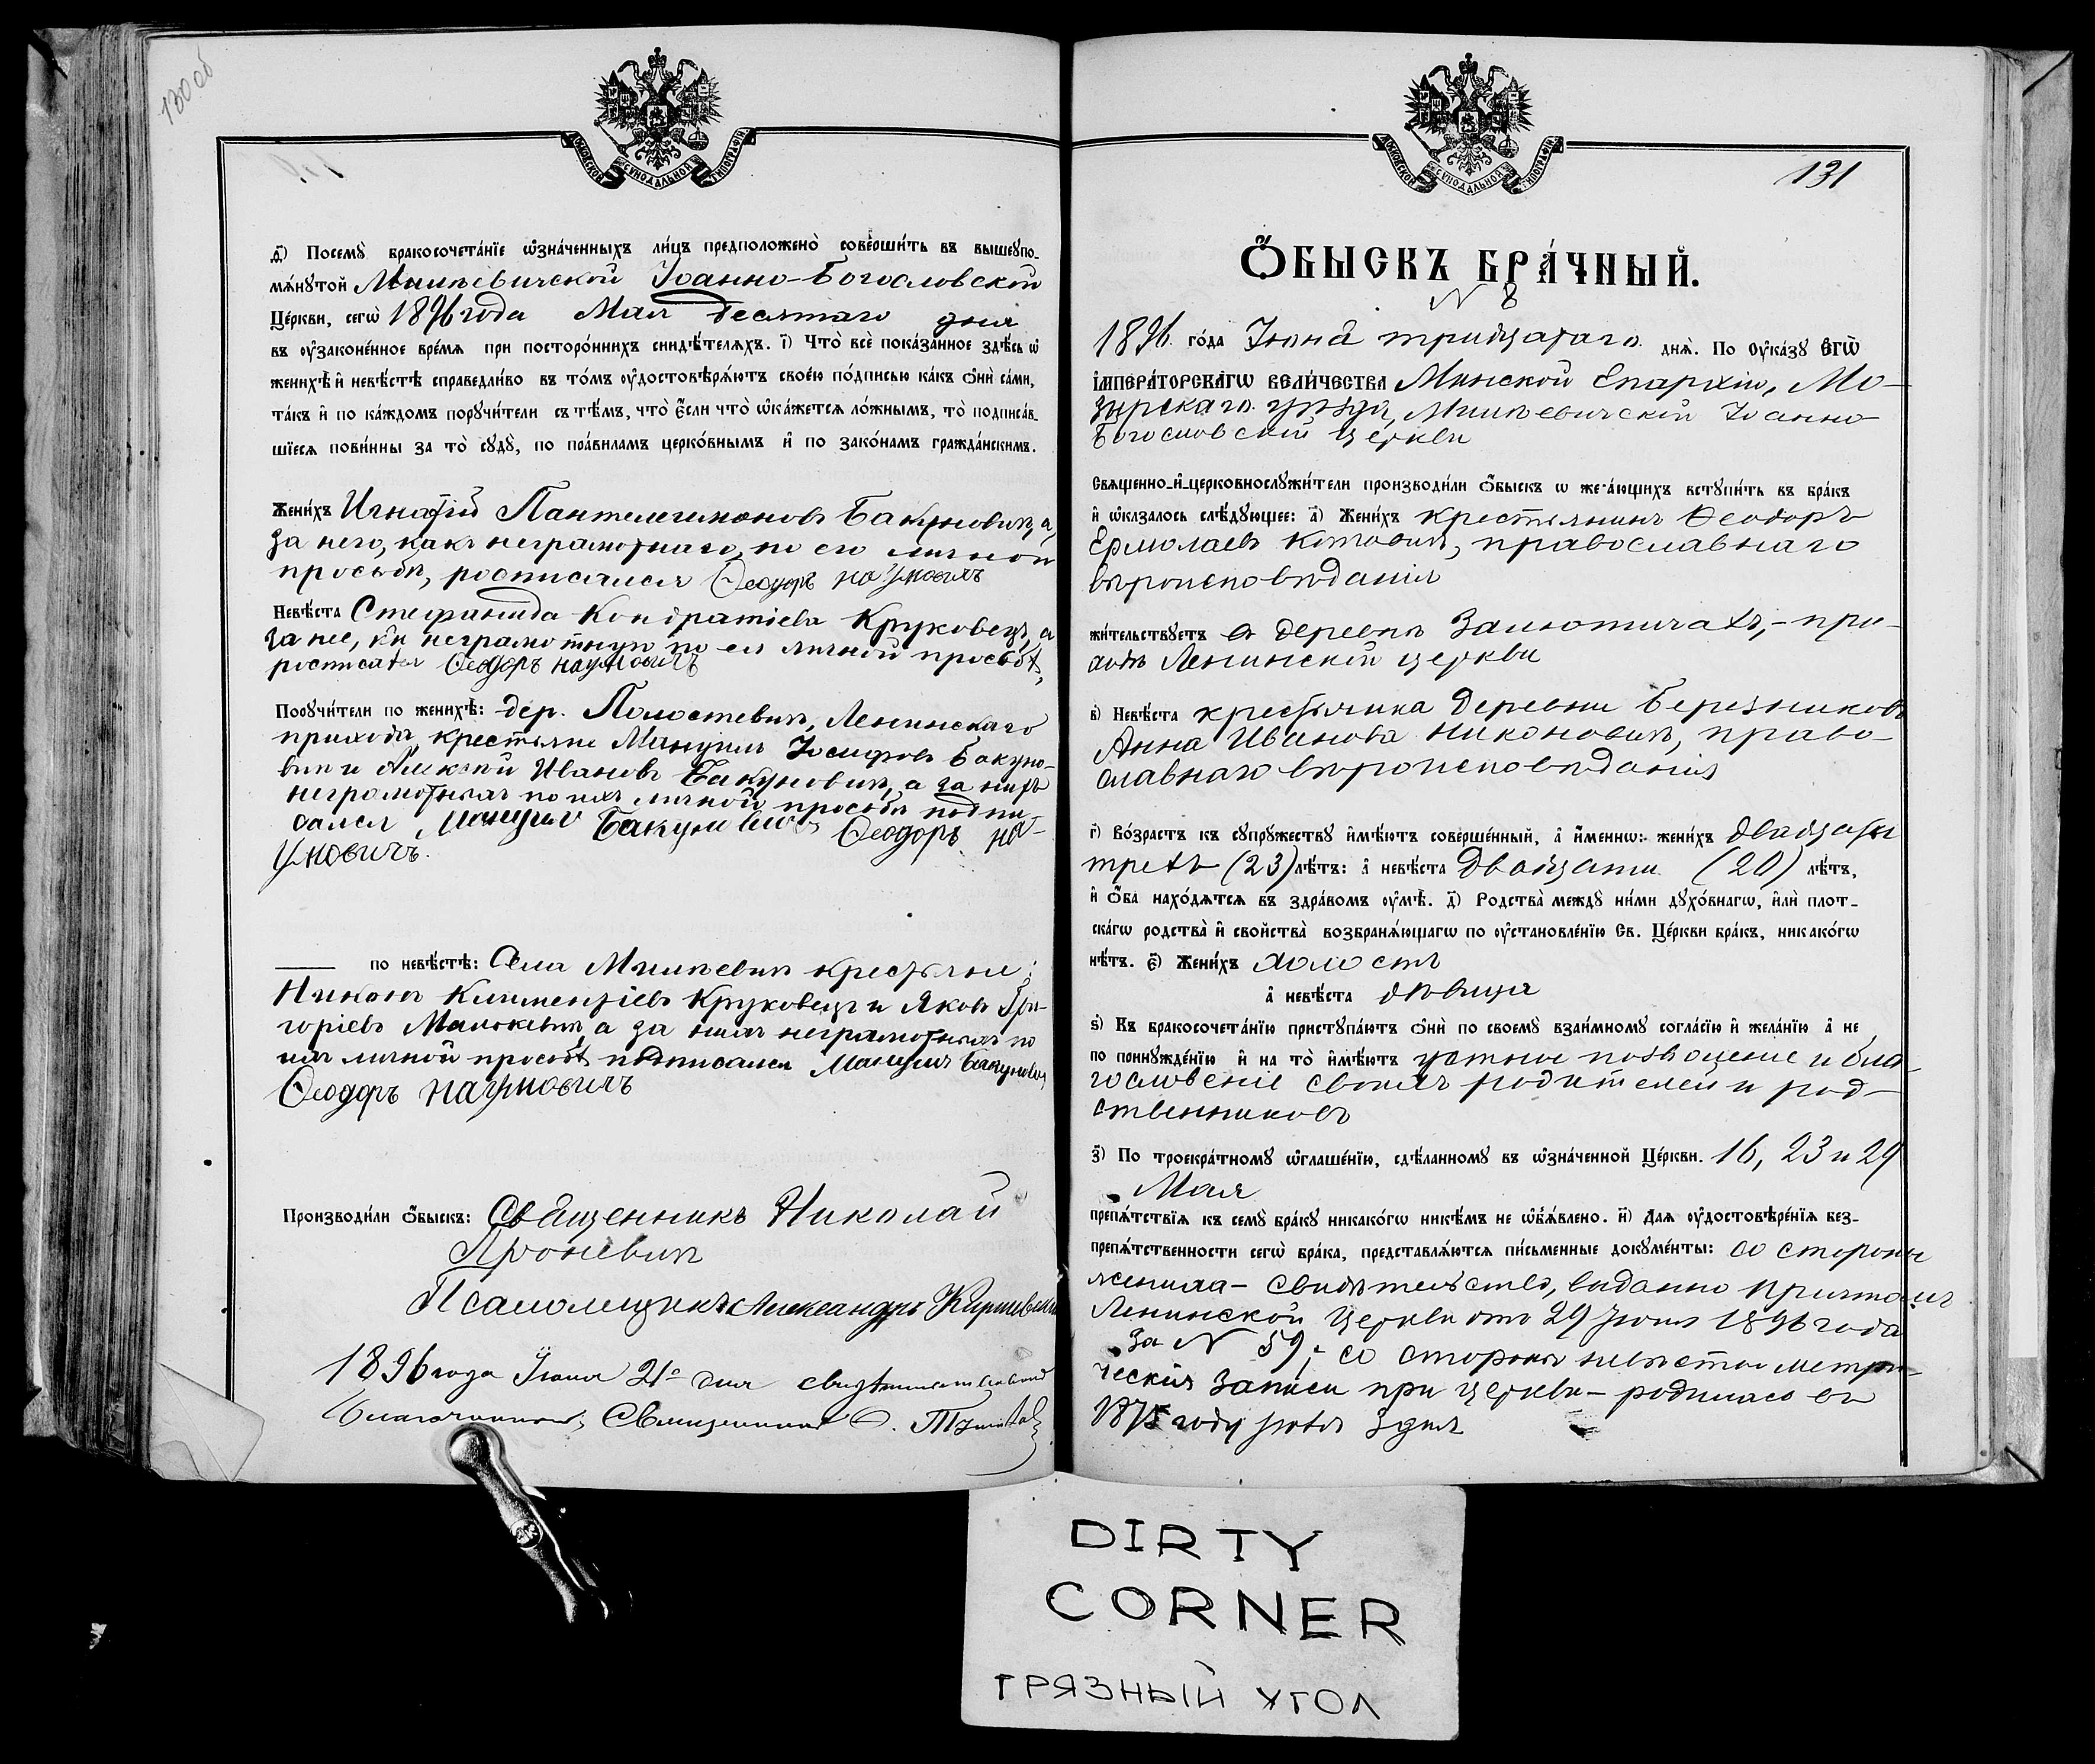 130 об
МОСКОВСКОЙ СѴНОДАЛЬНОЙ ТИПОГРАФІИ
ѳ҃) Посемꙋ̀ бракосочета́нїе ѡ҆зна́ченныхъ ли́цъ предположено̀ соверши́ть въ вышеꙋпо-
мѧ́нꙋтой Милевичской Іоанно-Богословской
Це́ркви, сегѡ̀ 1896 года Мая десятаго дня
въ ᲂу҆зако́ненное вре́мѧ при посторо́ннихъ свидѣ́телѧхъ. і҃) Что̀ всѐ пока́занное здѣ́сь ѡ҆
женихѣ̀ и҆ невѣ́стѣ справедли́во въ то́мъ ᲂу҆достовѣрѧ́ютъ свое́ю по́дписью ка́къ ѻ҆нѝ са́ми,
та́къ и҆ по ка́ждомъ порꙋчи́тели съ тѣ́мъ, что̀ є҆́сли что̀ ѡ҆ка́жетсѧ ло́жнымъ, то̀ подписа́в-
шїесѧ пови́нны за то̀ сꙋдꙋ̀, по пра́виламъ церко́внымъ и҆ по зако́намъ гражда́нскимъ.
Жени́хъ Игнатій Пантелеимоновъ Бакуновичъ, а
за него, какъ неграмотнаго, по его личной
просьбѣ, росписался Ѳеодоръ Наумовичъ
Невѣ́ста Стефанида Кондратіева Круковецъ, а
за нее, неграмотную по ея личной просьбѣ,
росписался Ѳеодоръ Наумовичъ
Порꙋчи́тели по женихѣ̀: дер. Полостевичъ, Ленинскаго
прихода, крестьяне Мануилъ Іосифовъ Бакуно-
вичъ и Алексѣй Ивановъ Бакуновичъ, а за нихъ
неграмотныхъ по ихъ личной просьбѣ подпи-
сался Мануилъ Бакуновичъ Ѳеодоръ На-
умовичъ.
по невѣ́стѣ: Села Милевичъ крестьяне:
Никонъ Климентіевъ Круковецъ и Яковъ Гри-
горіевъ Манкевичъ, а за нихъ неграмотныхъ по
ихъ личной просьбѣ подписался Мануилъ Бакуновичъ
Ѳеодоръ Наумовичъ
Производи́ли ѻ҆́быскъ: Священникъ Николай
Проневичъ
Псаломщикъ Александръ
1896 года Іюня 21го дня свидѣтельствовалъ
Благочинный, Священникъ
131
МОСКОВСКОЙ СѴНОДАЛЬНОЙ ТИПОГРАФІИ
Ѻ҆́БЫСКЪ БРА́ЧНЫЙ.
N 8
1896 го́да Іюня тридцатаго днѧ̀. По ᲂу҆ка́зꙋ Є҆ГѠ̀
І҆МПЕРА́ТОРСКАГѠ ВЕЛИ́ЧЕСТВА Минской Епархіи, Мо-
зырскаго уѣзда, Милевичской Іоанно-
Богословской церкви
Свѧщенно-и҆-церковнослꙋжи́тели производи́ли ѻ҆́быскъ ѡ҆ жела́ющихъ встꙋпи́ть въ бра́къ
и҆ ѡ҆каза́лось слѣ́дꙋющее: а҃) Жени́хъ крестьянинъ Ѳеодоръ
Ермолаевъ Котовичъ, православнаго
вѣроисповѣданія
жи́тельствꙋетъ въ деревнѣ Залютичахъ, - при-
ходѣ Ленинской церкви
в҃) Невѣ́ста крестьянка деревни Березняковъ
Анна Иванова Никоновичъ, право-
славнаго вѣроисповѣданія
г҃) Во́зрастъ къ сꙋпрꙋ́жествꙋ и҆мѣ́ютъ соверше́нный, а҆ и҆́меннѡ: жени́хъ двадцати
трехъ (23) лѣ́тъ: а҆ невѣ́ста двадцати (20) лѣ́тъ,
и҆ ѻ҆́ба нахо́дѧтсѧ въ здра́вомъ ᲂу҆мѣ̀. д҃) Родства̀ междꙋ̀ ни́ми дꙋхо́внагѡ, и҆лѝ плот-
ска́гѡ родства̀ и҆ сво́йства̀ возбранѧ́ющагѡ по ᲂу҆становле́нїю Св. Це́ркви бра́къ, никако́гѡ
нѣ́тъ. є҃) Жени́хъ холостъ
а҆ невѣ́ста дѣвица
ѕ҃) Къ бракосочета́нїю пристꙋпа́ютъ ѻ҆нѝ по своемꙋ̀ взаи́мномꙋ согла́сїю и҆ жела́нїю а҆ не
по принꙋжде́нїю и҆ на то̀ и҆мѣ́ютъ устное позволеніе и бла-
гословеніе своихъ родителей и род-
ственниковъ
з҃) По троекра́тномꙋ ѡ҆глаше́нїю, сдѣ́ланномꙋ въ ѡ҆зна́ченной Це́ркви. 16, 23 и 29
Мая
препѧ́тствїѧ къ семꙋ̀ бра́кꙋ никако́гѡ никѣ́мъ не ѡ҆б̾ѧ́влено. и҃) Длѧ ᲂу҆достовѣре́нїѧ без-
препѧ́тственности сегѡ̀ бра́ка, представлѧ́ютсѧ пи́сьменные докꙋме́нты: со стороны
жениха - свидѣтельство, выданно причтомъ
Ленинской церкви отъ 29 Іюня 1896 года
за N 59; со стороны невѣсты метри-
ческія записи при церкви - родилась въ
1875 году 3 дня
DIRTY
CORNER
ГРЯЗНЫЙ УГОЛ